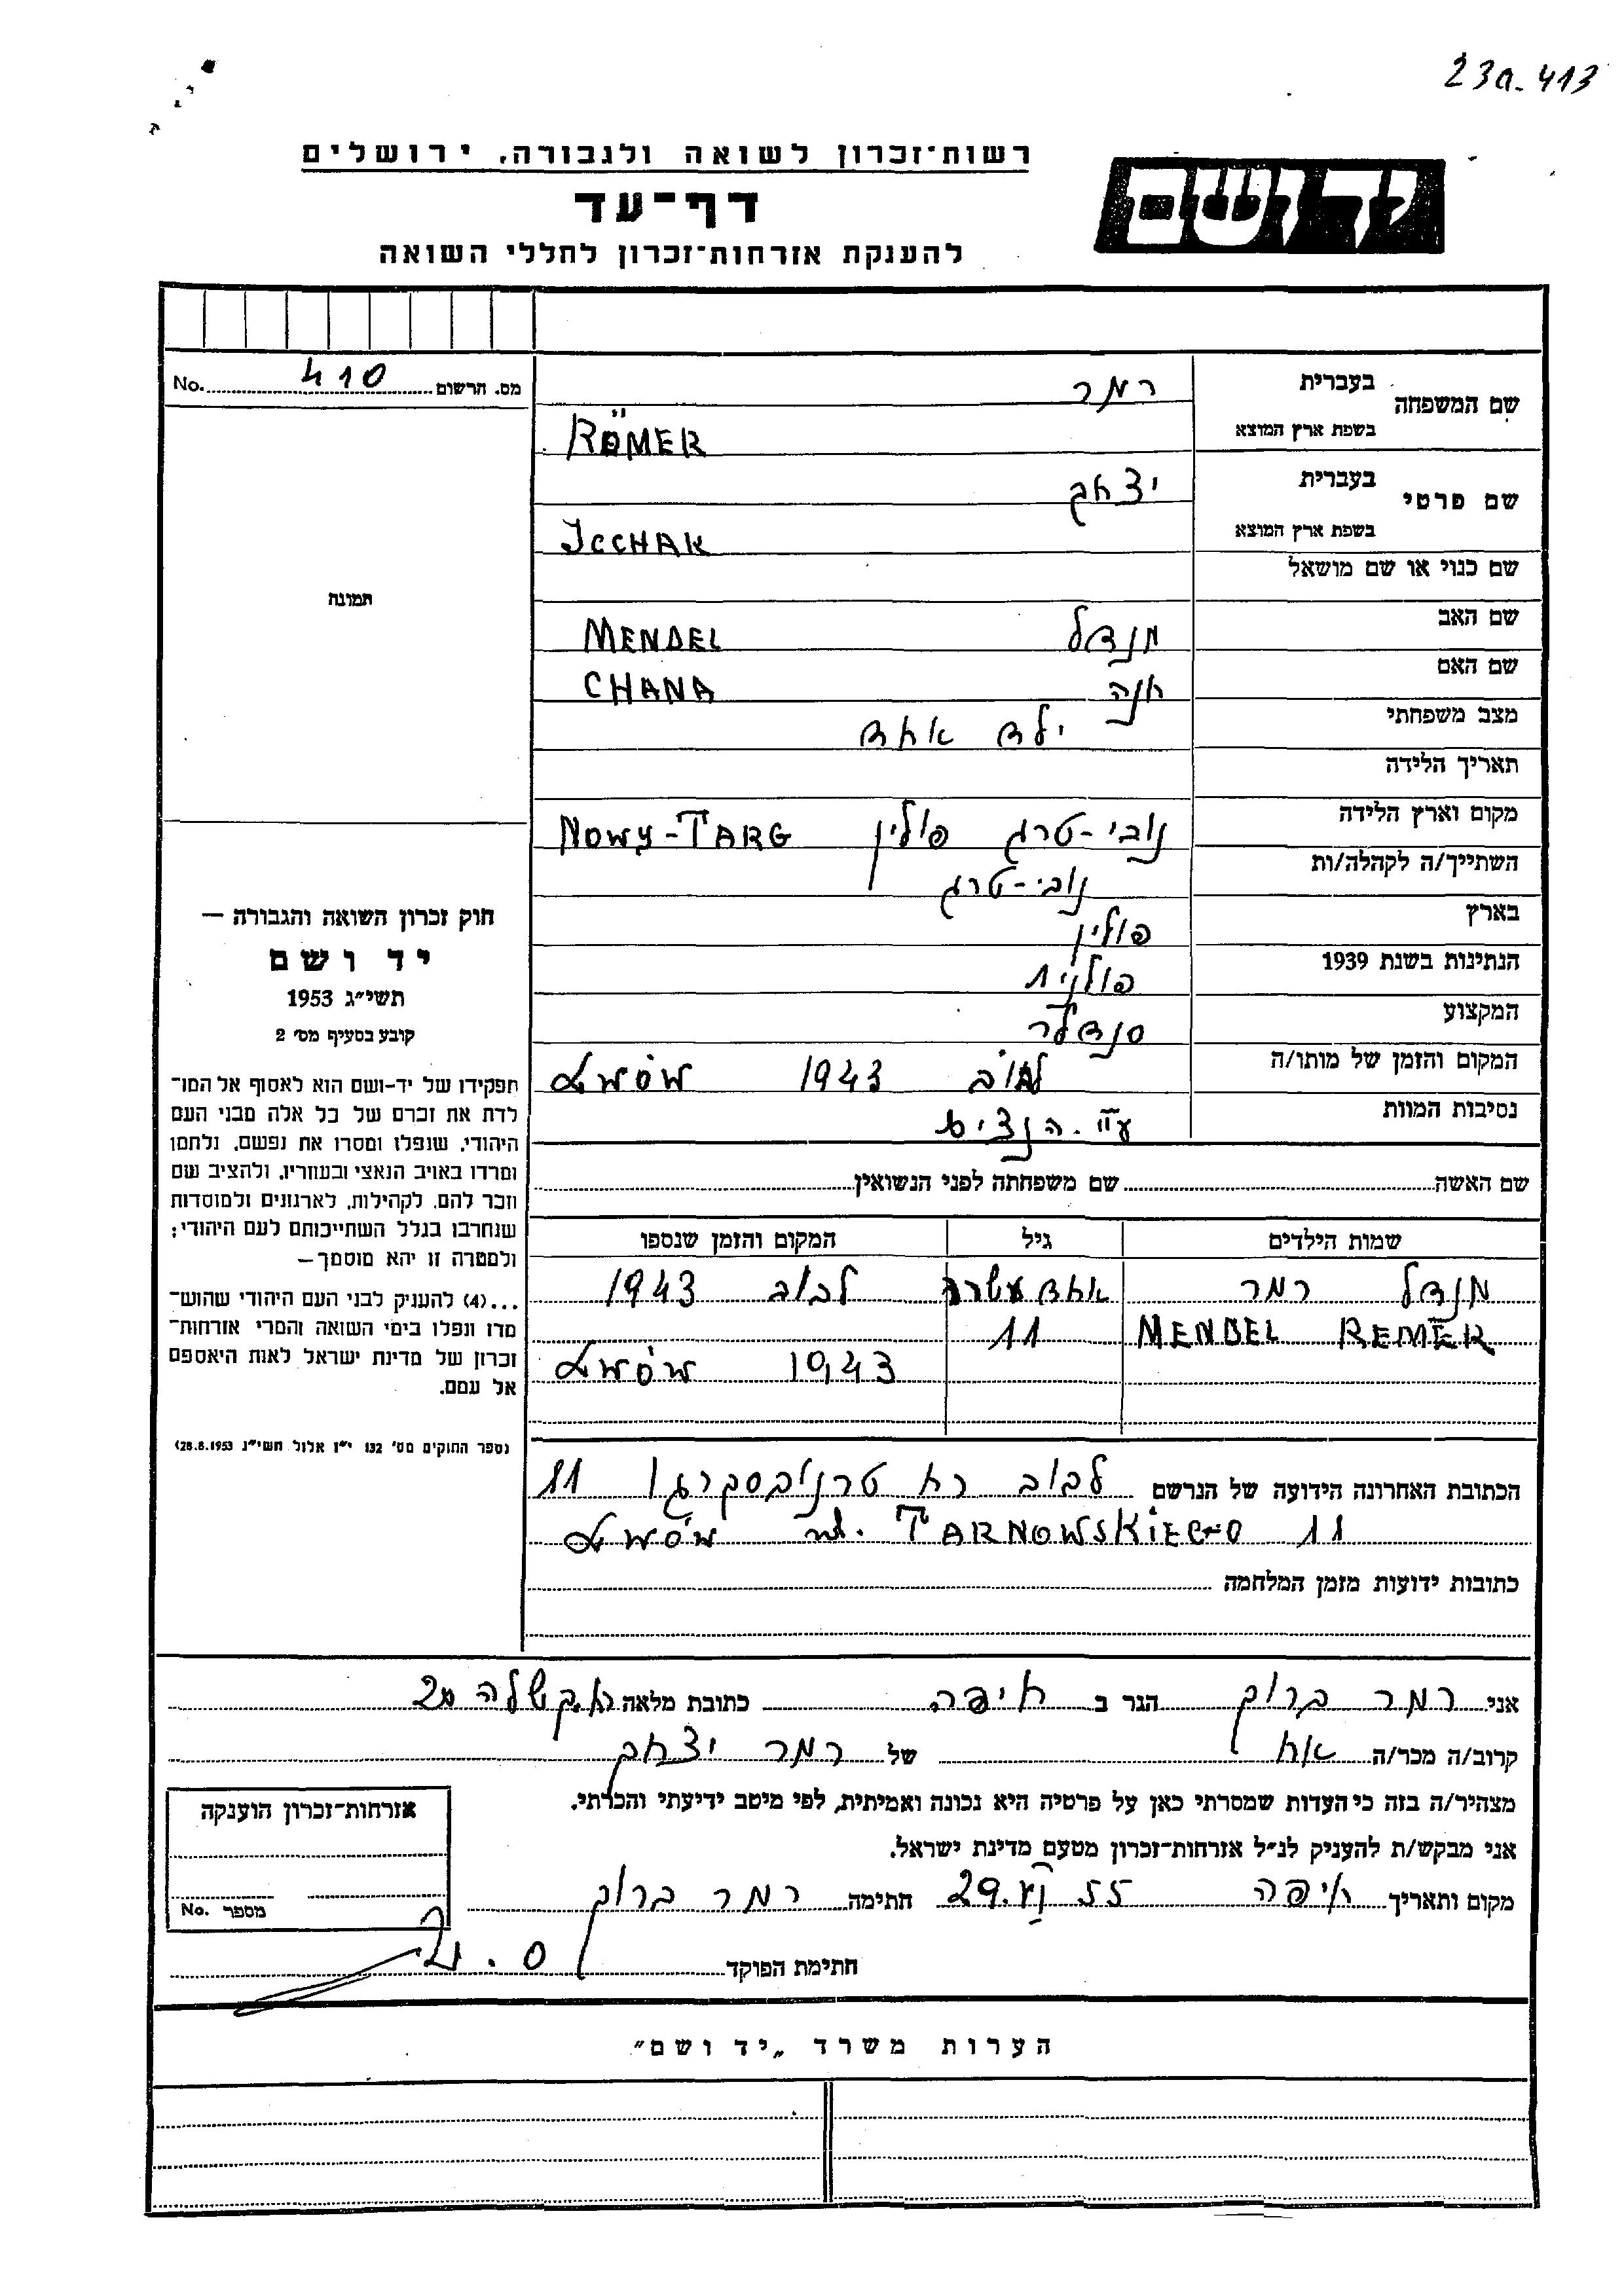 23a-413
רשות־זכרון לשואה ולגבורה, ירושלים
דף־עד
להענקת אזרחות־זכרון לחללי השואה
יד ושם
No. 410 מס. הרשום
תמונה
שם המשפחה
בעברית רמר
בשפת ארץ המוצא RÖMER
שם פרטי
בעברית יצחק
בשפת ארץ המוצא ICCHAK
שם כנוי או שם מושאל
שם האב מנדל MENDEL
שם האם חנה CHANA
מצב משפחתי ילד אחד
תאריך הלידה
מקום וארץ הלידה נובי-טרג פולין NOWY-TARG
השתייך/ה לקהלה/ות נובי-טרג
בארץ פולין
הנתינות בשנת 1939 פולנית
המקצוע סנדלר
המקום והזמן של מותו/ה לבוב 1943 LWÓW
נסיבות המוות ע"י הנצים
שם האשה שם משפחתה לפני הנשואין
שמות הילדים גיל המקום והזמן שנספו
מנדל רמר אחד עשרה לבוב 1943
MENDEL REMER 11
LWÓW 1943
הכתובת האחרונה הידועה של הנרשם לבוב רח טרנובסקיגו 11
LWÓW ul. TARNOWSKIEGO 11
כתובות ידועות מזמן המלחמה
חוק זכרון השואה והגבורה —
יד ושם
תשי״ג 1953
קובע בסעיף מס׳ 2
תפקידו של יד-ושם הוא לאסוף אל המו־
לדת את זכרם של כל אלה מבני העם
היהודי, שנפלו ומסרו את נפשם, נלחמו
ומרדו באויב הנאצי ובעוזריו, ולהציב שם
וזכר להם, לקהילות, לארגונים ולמוסדות
שנחרבו בגלל השתייכותם לעם היהודי;
ולמטרה זו יהא מוסמך —
...(4) להעניק לבני העם היהודי שהוש־
מדו ונפלו בימי השואה והמרי אזרחות־
זכרון של מדינת ישראל לאות היאספם
אל עמם.
(ספר החוקים מס׳ 132 י״ז אלול תשי״ג 28.8.1953)
אני רמר ברוך הגר ב חיפה כתובת מלאה 20
קרוב/ה מכר/ה אח של רמר יצחק
מצהיר/ה בזה כי העדות שמסרתי כאן על פרטיה היא נכונה ואמיתית, לפי מיטב ידיעתי והכרתי.
אני מבקש/ת להעניק לנ״ל אזרחות־זכרון מטעם מדינת ישראל.
מקום ותאריך חיפה 55 29. חתימה רמר ברוך
חתימת הפוקד
אזרחות־זכרון הוענקה
No. מספר
הערות משרד „יד ושם״